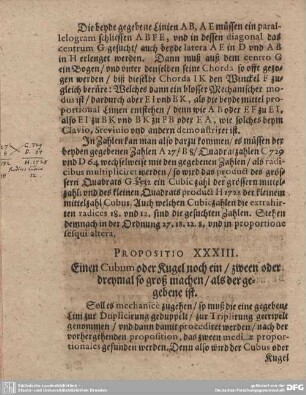 Die beyde gegebene Linien AB, AE müssen ein paral-
lelogram schliessen ABFE, vnd in dessen diagonal das
centrum G gesucht/ auch beyde latera AE in D vnd AB
in H erlenget werden. Dann muß auß dem centro G
ein Bogen/ vnd vnter denselben seine Chorda so offt gezo-
gen werden/ biß dieselbe Chorda IK den Winckel F zu-
gleich berüre: Welches dann ein blosser Mechanischer mo-
dus ist/ dardurch aber EI vnd BK, als die beyde mittel pro-
portional Linien entstehen/ denn wie AB oder EF zu EI,
also EI zu BK vnd BK zu FB oder EA, wie solches beym
Clavio, Stevino vnd andern demonstriret ist.
In Zahlen kan man also darzu kommen/ es müssen der
beyden gegebenen Zahlen A 27/ B 8/ Quadratzahlen C 729
vnd D 64 wechselsweise mit den gegebenen Zahlen/ als radi-
cibus multipliciret werden/ so wird das product des grös-
sern Quadrats G 5832 ein Cubiczahl der grössern mittel-
zahl vnd des kleinen Quadrats product H 1728 der kleinern
mittelzahl Cubus. Auch welchen Cubiczahlen die extrahir-
ten radices 18. vnd 12. sind die gesuchten Zahlen. Stehen
demnach in der Ordnung 27. 18. 12. 8. vnd in proportione
sesqui altera.
PROPOSITIO XXXIII.
Einen Cubum oder Kugel noch ein/ zween oder
dreymal so groß machen/ als der ge-
gebene ist.
Soll es mechanice zugehen/ so muß die eine gegebene
Lini zur Duplicirung geduppelt/ zur Triplirung gerripelt
genommen/ vnd dann damit procediret werden/ nach der
vorhergehenden proposition, das zween mediæ propor-
tionales gefunden werden. Denn also wird der Cubus oder
Kugel
DFG